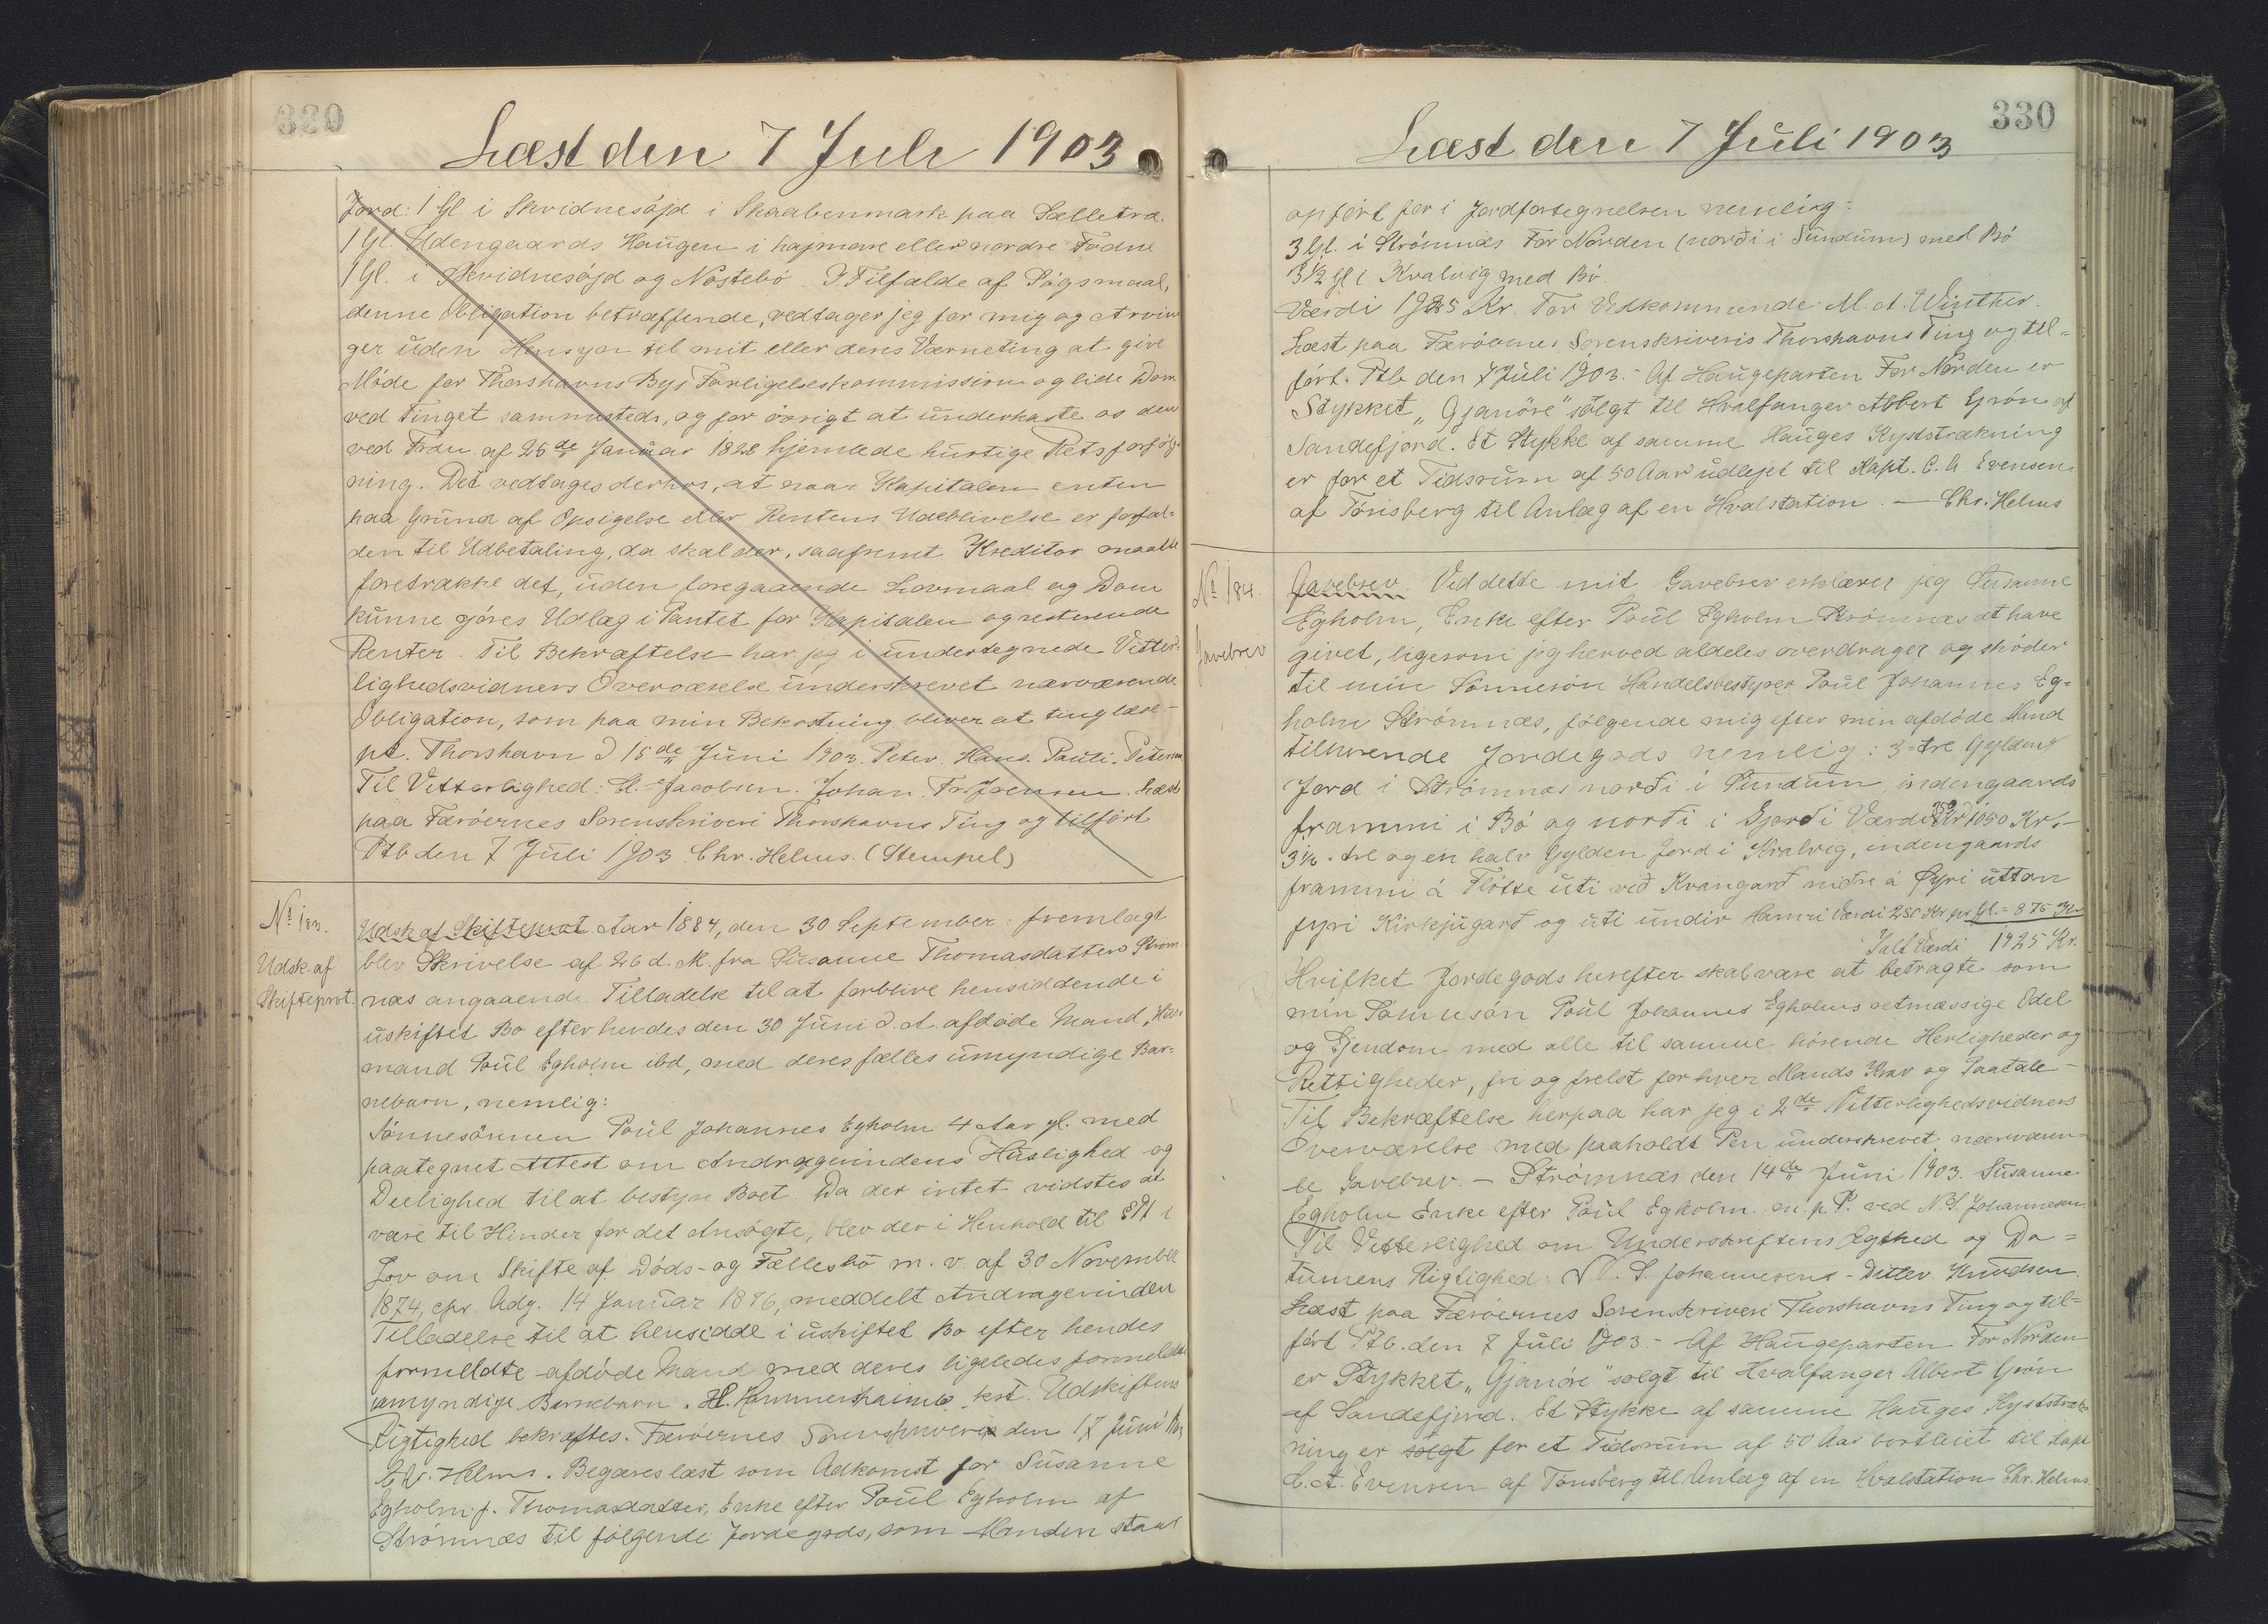 330
Læst den 7 Juli 1903
Jord: 1 Gl. i Skridnesøjd i Skaabenmark paa Sælletræ.
1 Gl. Udengaards Haugen i hajmare eller nordre Fodne
1 Gl. i Skridnesøjd og Nøstebø. I Tilfælde af Søgsmaal,
denne Obligation betræffende, vedtager jeg for mig og Arvin
ger uden Hensyn til mit eller deres Værneting at give
Møde for Thorshavns Bys Forligelseskommission og lide Dom
ved Tinget sammesteds, og for øvrigt at underkaste os den
ved Frdn. af 25de Januar 1828 hjemlede hurtige Retsforfølg-
ning. Det vedtages derhos, at naar Kapitalen enten
paa Grund af Opsigelse eller Rentens Udeblivelse er forfal-
den til Udbetaling, da skal der, saafremt Kreditor maatte
foretrække det, uden foregaaende Lovmaal og Dom
kunne gøres Udlæg i Pantet for Kapitalen og resterende
Renter. Til Bekræftelse har jeg i undertegnede Vitter-
lighedsvidners Overværelse underskrevet nærværende
Obligation, som paa min Bekostning bliver at tinglæse.-
pt. Thorshavn d 15de Juni 1903. Peter Hans Pauli Petersen
Til Vitterlighed: El. Jacobsen. Johan Fr. Joensen. Læst
paa Færøernes Sorenskriveri Thorshavns Ting og tilført
Ptb den 7 Juli 1903. Chr. Helms. (Stempel)
No 183.
Udsk. af
Skifteprot.
Udsk af Skifteprot. Aar 1884, den 30 September: fremlagt
blev Skrivelse af 26 d. M. fra Susanne Thomasdatter Strøm
næs angaaende Tilladelse til at forblive hensiddende i
uskiftet Bo efter hendes den 30 Juni d. A. afdøde Mand, Hus-
mand Poul Egholm ibd, med deres fælles umyndige Bar-
nebarn, nemlig:
Sønnesønnen Poul Johannes Egholm 4 Aar gl. med
paategnet Attest om Andragerindens Huslighed og
Duelighed til at bestyre Boet. Da der intet vidstes at
være til Hinder for det Ansøgte, blev der i Henhold til §91 i
Lov om Skifte af Døds- og Fællesbo m. v. af 30 November
1874, cfr. Adg. 14 Januar 1876, meddelt Andragerinden
Tilladelse til at hensidde i uskiftet Bo efter hendes
formeldte afdøde Mand med deres ligeledes formeldte
umyndige Barnebarn. H. Hammershaimb, kst. Udskriftens
Rigtighed bekræftes. Færøernes Sorenskriveri den 17 Juni 1903
Chr. Helms. Begæres læst som Adkomst for Susanne
Egholm f. Thomasdatter, Enke efter Poul Egholm af
Strømnæs til følgende Jordegods, som Manden staar
330
Læst den 7 Juli 1903
opført for i Jordfortegnelsen nemlig:
3 Gl. i Strømnæs For Norden (norði i Sundum) med Bø
3 1/2 Gl i Kvalvig med Bø.
Værdi 1925 Kr. For Vedkommende M. A. Winther.
Læst paa Færøernes Sorenskriveris Thorshavns Ting og til-
ført Ptb den 7 Juli 1903.- Af Haugeparten For Norden er
Stykket „Gjanøre" solgt til Hvalfanger Albert Grøn af
Sandefjord. Et Stykke af samme Hauges Kyststrækning
er for et Tidsrum af 50 Aar udlejet til Kapt. C. A. Evensen
af Tønsberg til Anlæg af en Hvalstation. — Chr. Helms
No 184.
Gavebrev
Gavebrev. Ved dette mit Gavebrev erklærer jeg Susanne
Egholm, Enke efter Poul Egholm Strømnæs at have
givet, ligesom jeg herved aldeles overdrager og skøder
til min Sønnesøn Handelsbestyrer Poul Johannes Eg-
holm Strømnæs, følgende mig efter min afdøde Mand
tilhørende Jordegods nemlig: 3 - tre Gylden
Jord i Strømnæs norði i Sundum, indengaards
frammi i Bø og norði i Gjerði Værdi 350 Kr 1050 Kr.-
3 1/2 - tre og en halv Gylden Jord i Kvalvig, indengaards
frammi á Fløtte úti við Kvangarð niðre á Øyri uttan
fyri Kirkjugarð og uti undir Hamri Værdi 250 Kr pr Gl. = 875 Kr
Ialt Værdi 1925 Kr.
Hvilket Jordegods herefter skal være at betragte som
min Sønnesøn Poul Johannes Egholms retmæssige Odel
og Ejendom med alle til samme hørende Herligheder og
Rettigheder, fri og frelst for hver Mands Krav og Paatale-
Til Bekræftelse herpaa har jeg i 2de Vitterlighedsvidners
Overværelse med paaholdt Pen underskrevet nærværen-
de Gavebrev. — Strømnæs den 14de Juni 1903. Susanne
Egholm Enke efter Poul Egholm. m. p. P. ved N. S. Johannesen
Til Vitterlighed om Underskriftens Ægthed og Da-
tumens Rigtighed: N. S. Johannesen - Ditlev Knudsen.
Læst paa Færøernes Sorenskriveri Thorshavns Ting og til-
ført Ptb. den 7 Juli 1903.- Af Haugeparten For Norden
er Stykket „Gjanøre" solgt til Hvalfanger Albert Grøn
af Sandefjord. Et Stykke af samme Hauges Kyststræk-
ning er solgt for et Tidsrum af 50 Aar bortlejet til Kapt
C. A. Evensen af Tønsberg til Anlæg af en Hvalstation Chr. Helms.